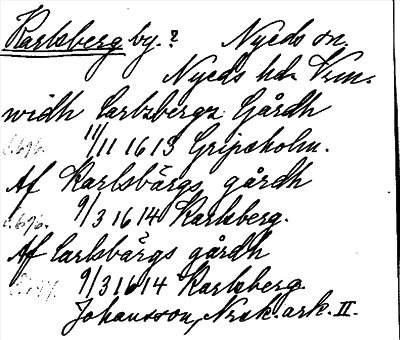 Karlsberg by.? Nyeds sn.
Nyeds hd. Vrm.
widh Carlzbergz Gårdh
11/11 1613 Gripsholm.
Af Karlsbärgs gårdh
9/3 1614 Karlsberg.
Af Carlsbärgs gårdh
9/3 1614 Karlsberg.
Johansson, Nrsk. ark. II.